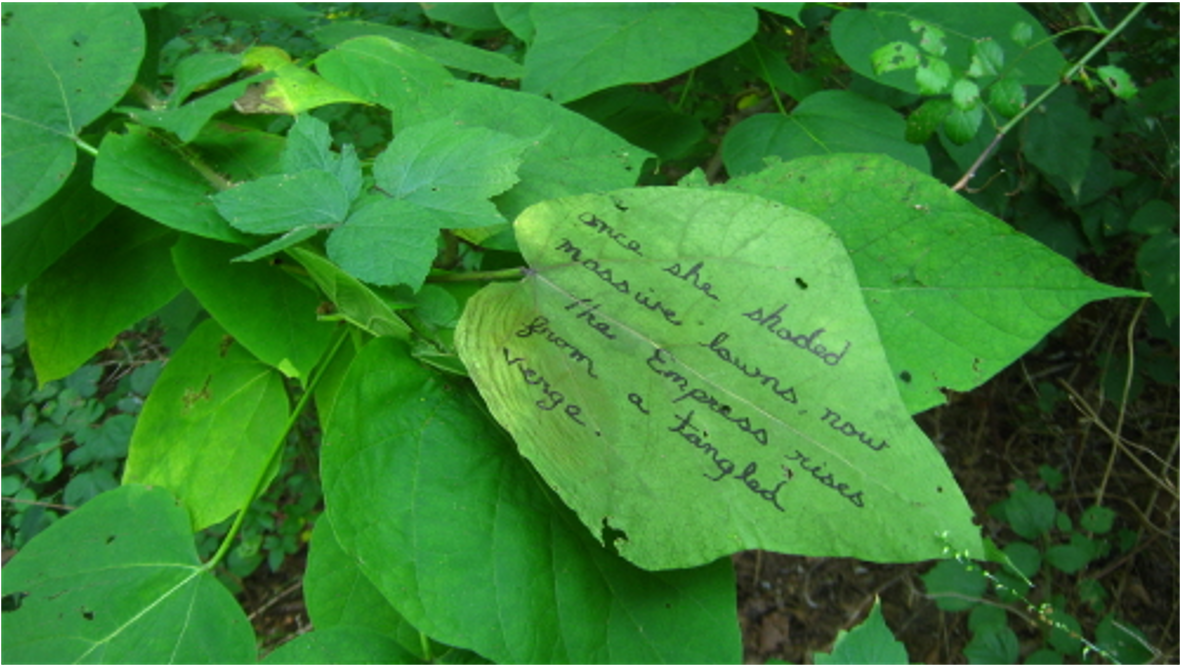 once she shaded
massive lawns. now
The Empress rises
from a tangled
verge.